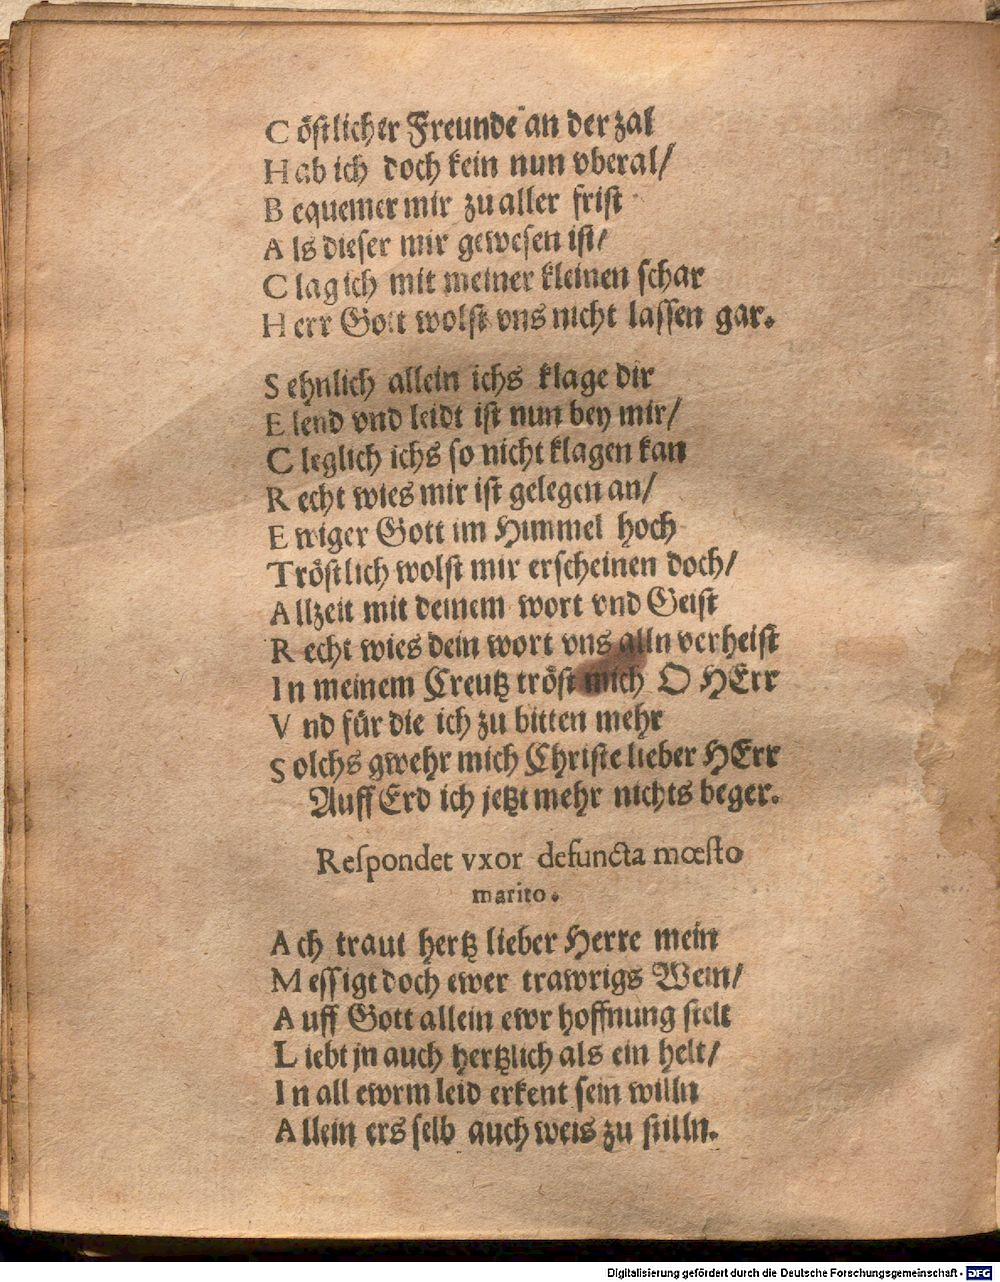 Cöstlicher Freunde an der zal
Hab ich doch kein nun vberal/
Bequemer mir zu aller frist
Als dieser mir gewesen ist/
Clag ich mit meiner kleinen schar
Herr Gott wolst vns nicht lassen gar.
Sehnlich allein ichs klage dir
Elend vnd leidt ist nun bey mir/
Cleglich ichs so nicht klagen kan
Recht wies mir ist gelegen an/
Ewiger Gott im Himmel hoch
Tröstlich wolst mir erscheinen doch/
Allzeit mit deinem wort vnd Geist
Recht wies dein wort vns alln verheist
In meinem Creutz tröst mich O HErr
Vnd für die ich zu bitten mehr
Solchs gwehr mich Christe lieber HErr
Auff Erd ich jetzt mehr nichts beger.
Respondet vxor defuncta mœsto
marito.
Ach traut hertz lieber Herre mein
Messigt doch ewer trawrigs Wein/
Auff Gott allein ewr hoffnung stelt
Liebt jn auch hertzlich als ein helt/
In all ewrm leid erkent sein willn
Allein ers selb auch weis zu stilln.
Digitalisierung gefördert durch die Deutsche Forschungsgemeinschaft - DFG